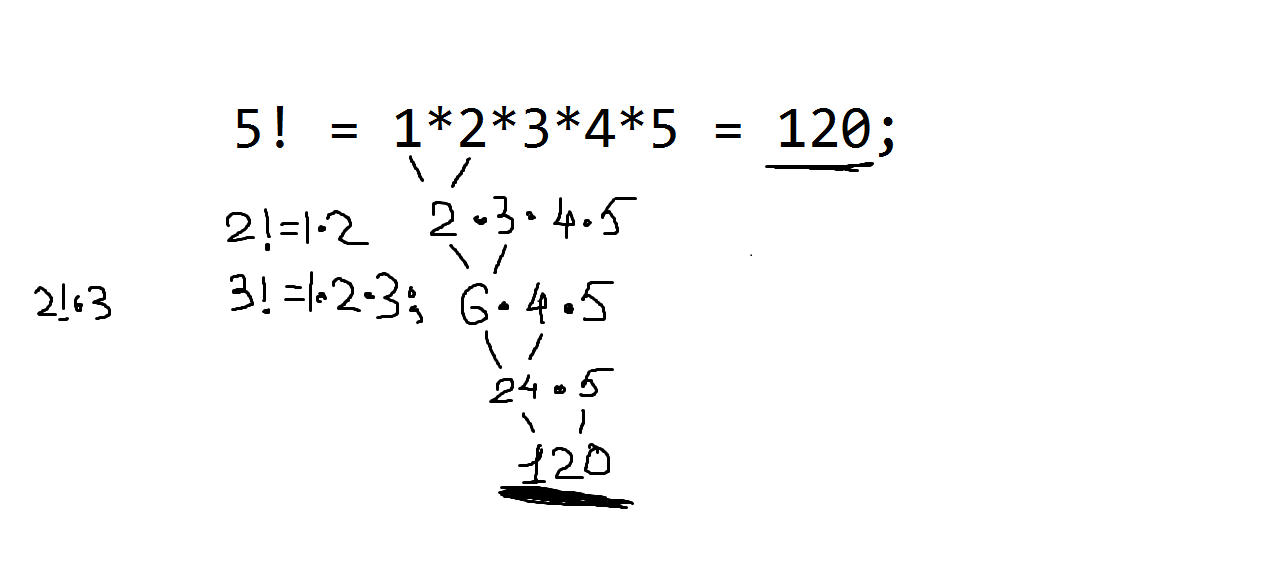 5! = 1*2*3*4*5 = 120;
2!=1·2 2·3·4·5
2!·3 3!=1·2·3; 6·4·5
24·5
120